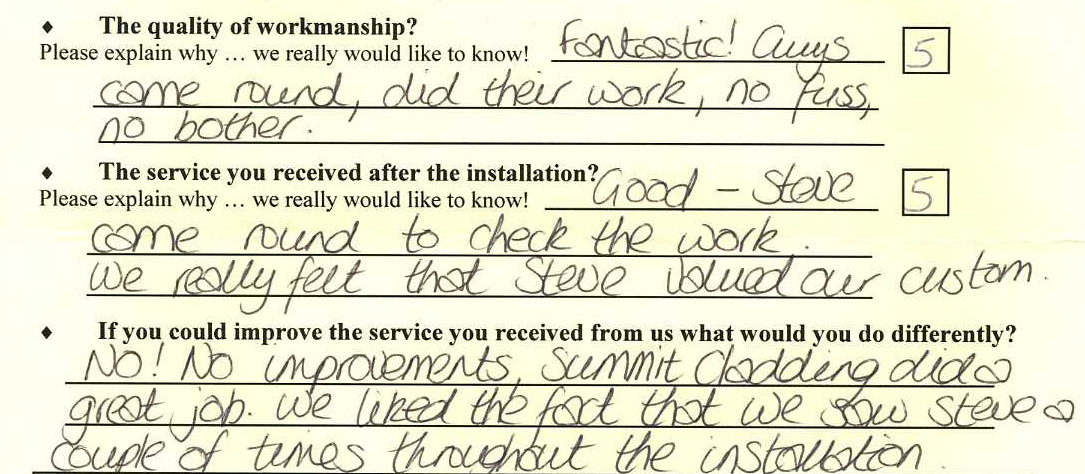 ♦ The quality of workmanship?
Please explain why ... we really would like to know! Fantastic! Guys 5
came round, did their work, no fuss,
no bother.
♦ The service you received after the installation? Good - Steve
Please explain why ... we really would like to know! 5
came round to check the work.
We really felt that Steve valued our custom.
♦ If you could improve the service you received from us what would you do differently?
No! No improvements, Summit Cladding did a
great job. We liked the fact that we saw Steve a
couple of times throughout the installation.